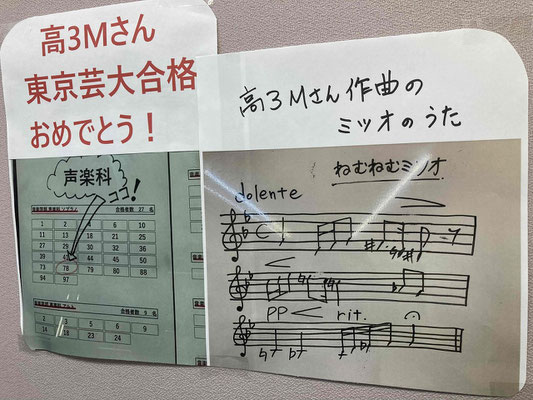 高3Mさん
東京芸大合格
おめでとう！
声楽科
ココ！
合格者数 27 名
1 2 5 6 10
11 13 18 21 25
27 29 30 31
39 44 46
73 78 79 80 88
94 97
合格者数 9 名
2 3 5 6 9
14 18 23 24
高3Mさん作曲の
ミツオのうた
ねむねむミツオ
dolente
PP
rit.